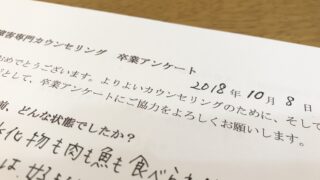 障害専門カウンセリング 卒業アンケート
2018年10月8日
おめでとうございます。よりよいカウンセリングのために、そして
として、卒業アンケートにご協力をよろしくお願いします。
前、どんな状態でしたか？
水化物も肉も魚も食べられ